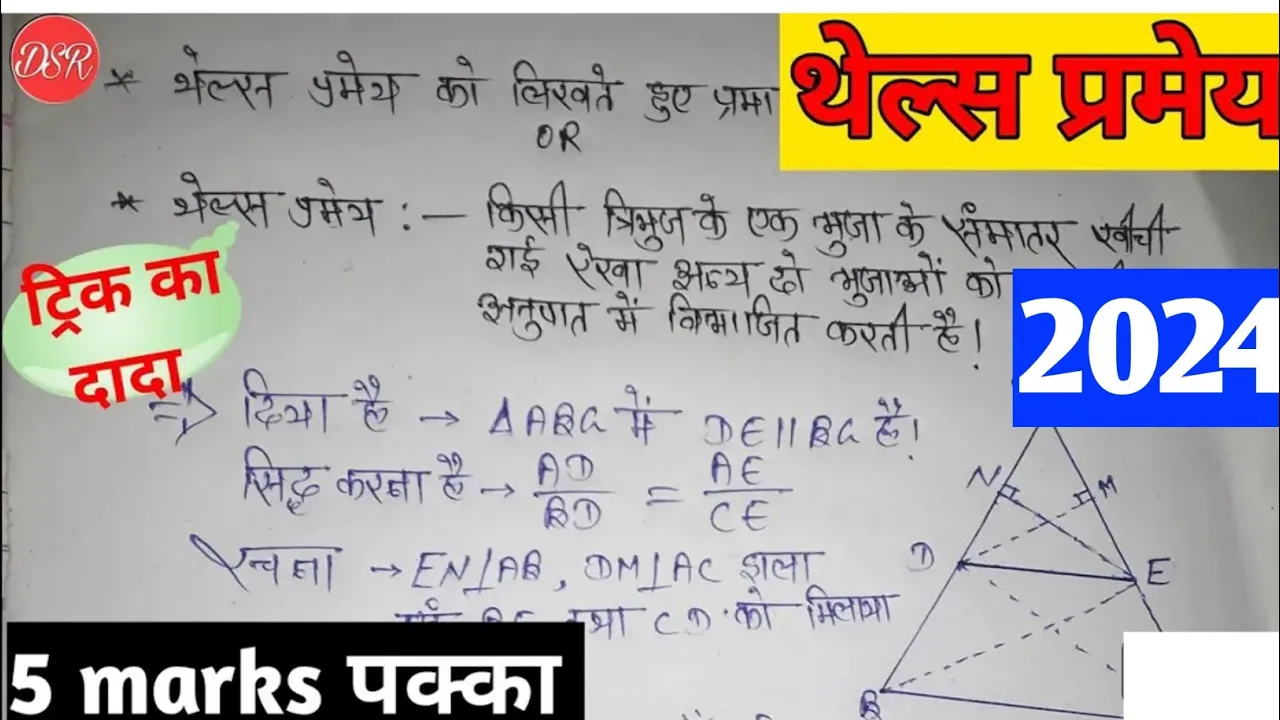 DSR
* थेल्स प्रमेय को लिखते हुए प्रमा
थेल्स प्रमेय
OR
* थेल्स प्रमेय :— किसी त्रिभुज के एक भुजा के संमातर खींची
गई रेखा अन्य दो भुजाओं को
अनुपात में विभाजित करती है।
ट्रिक का
दादा
2024
=> दिया है → ΔABC में DE||BC है।
सिद्ध करना है → AD/BD = AE/CE
रचना → EN⊥AB, DM⊥AC डाला
तथा CD को मिलाया
N M
D E
B
5 marks पक्का